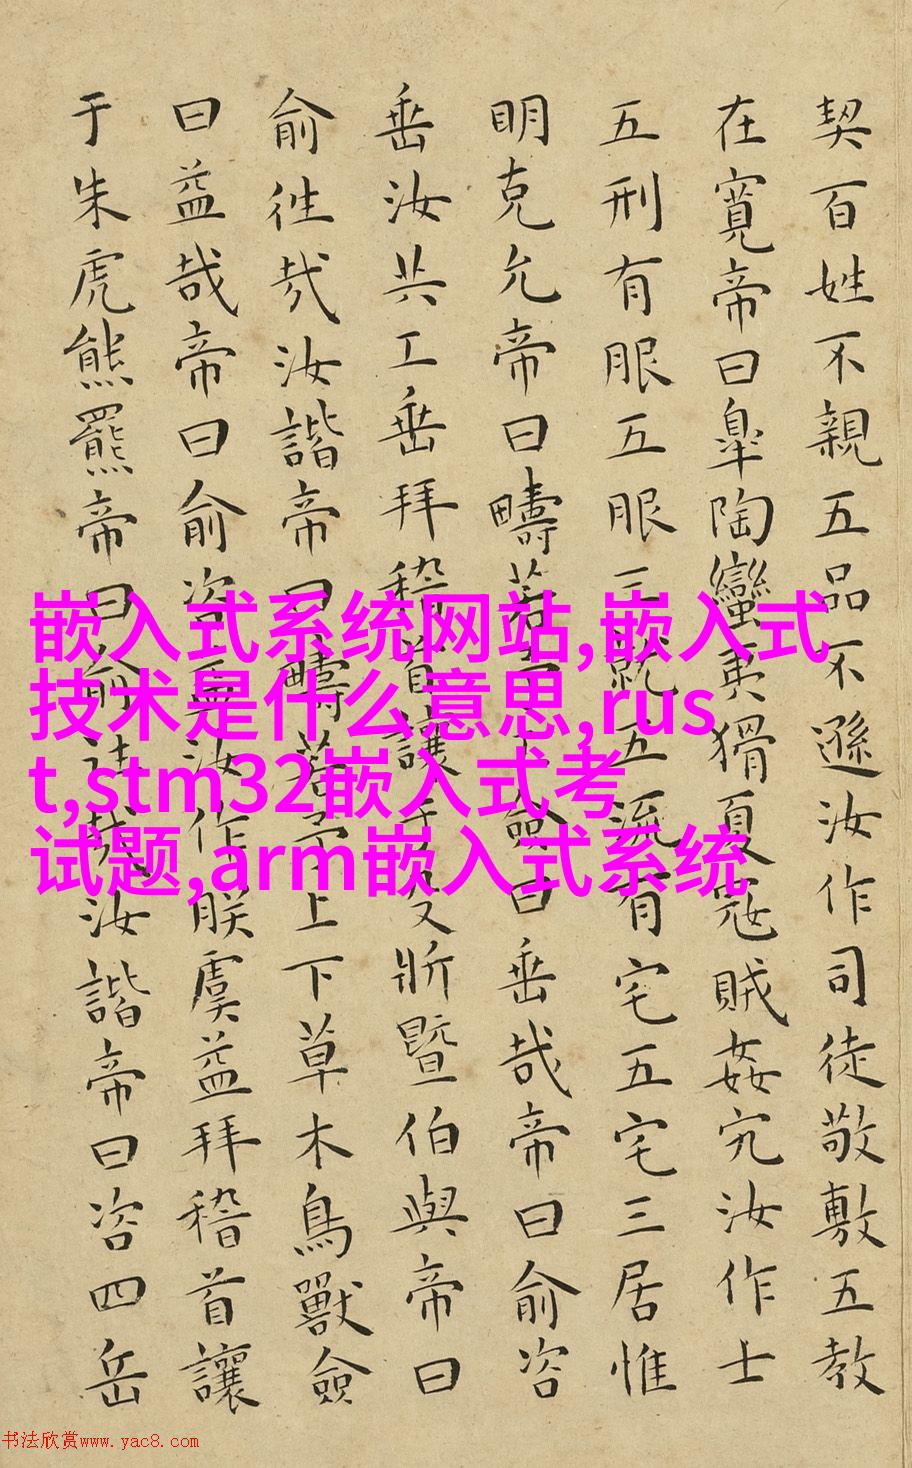 契百姓不親五品不遜汝作司徒敬敷五教
在寬帝曰皐陶蠻夷猾夏寇賊姦宄汝作士
五刑有服五服三就五流有宅五宅三居惟
明克允帝曰疇若予工僉曰垂哉帝曰俞咨
垂汝共工垂拜稽首讓于殳斨暨伯與帝曰
俞往哉汝諧帝曰疇若予上下草木鳥獸僉
曰益哉帝曰俞咨益汝作朕虞益拜稽首讓
于朱虎熊羆帝曰俞往哉汝諧帝曰咨四岳
嵌入式系统网站,嵌入式
技术是什么意思,rus
t,stm32嵌入式考
试题,arm嵌入式系统
书法欣赏www.yac8.com